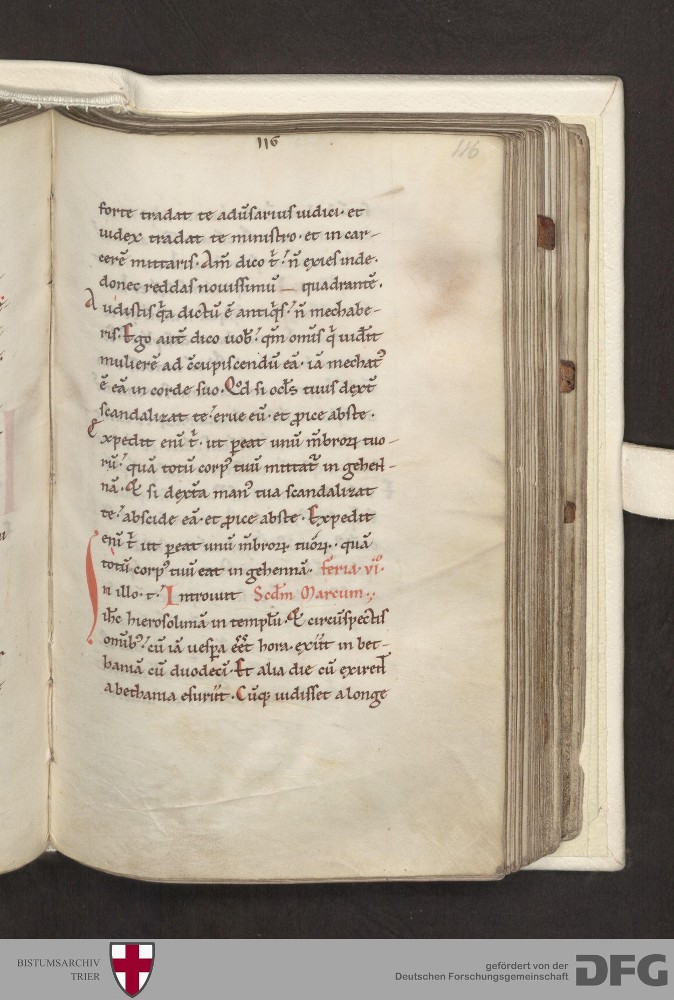 116
116
forte tradat te adu̅sarius iudici· et
iudex tradat te ministro· et in car-
cere̅ mittaris· Am̅ dico t̅· n̅ exies inde·
donec reddas nouissimu̅ quadrante̅·
Audistis q̅a dictu̅ e̅ antiq̅s· n̅ mechabe-
ris· Ego aut̅ dico uob̅· qm̅ om̅is q̅ uid̅it
muliere̅ ad c̅cupiscendu̅ ea̅· ia̅ mechatꝰ
e̅ ea̅ in corde suo· Qd̅ si ocl̅s tuus dext̅
scandalizat te· erue eu̅· et ꝓice abs te·
Expedit eni̅ t̅· ut ꝑeat unu̅ m̅broꝝ tuo-
ru̅· qua̅ totu̅ corpꝰ tuu̅ mittat̅ in gehen-
na̅· Et si dext̅a manꝰ tua scandalizat
te· abscide ea̅· et ꝓice abs te· Expedit
eni̅ t̅ ut ꝑeat unu̅ m̅broꝝ tuoꝝ· qua̅
totu̅ corpꝰ tuu̅ eat in gehenna̅· feria· vi·
In illo· t· Introiuit Scd̅m Marcum·
ih̅c hierosolima̅ in templu̅· Et circu̅spectis
omib̅ꝰ· cu̅ ia̅ uesꝑa ee̅t hora· exiit in bet-
hania̅ cu̅ duodeci̅· Et alia die cu̅ exirent
a bethania esuriit· Cu̅qꝫ uidisset a longe
BISTUMSARCHIV
TRIER
gefördert von der
Deutschen Forschungsgemeinschaft
DFG